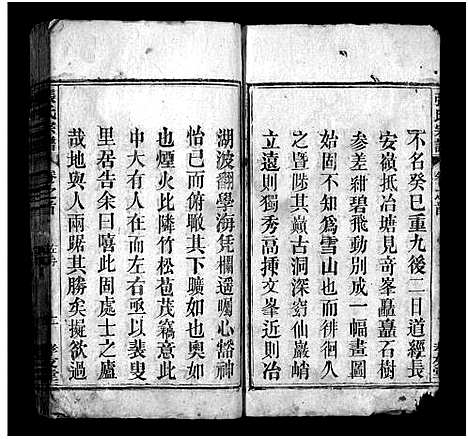 不名癸巳重九後二日道經長
安嶺抵冶塘見奇峯矗矗石樹
參差紺碧飛動别成一幅畫圖
始固不知爲雪山也而徘徊久
之暨陟其巔古洞深窈仙巖峭
立遠則獨秀高揷文峯近則冶
湖波翻學海凭欄遥矚心豁神
怡已而俯瞰其下曠如也奥如
也煙火比隣竹松苞茂竊意此
中大有人在左右正以裴叟
里居告余曰嘻此固處士之廬
哉地與人兩踞其勝矣擬欲過
張氏宗譜
卷之首